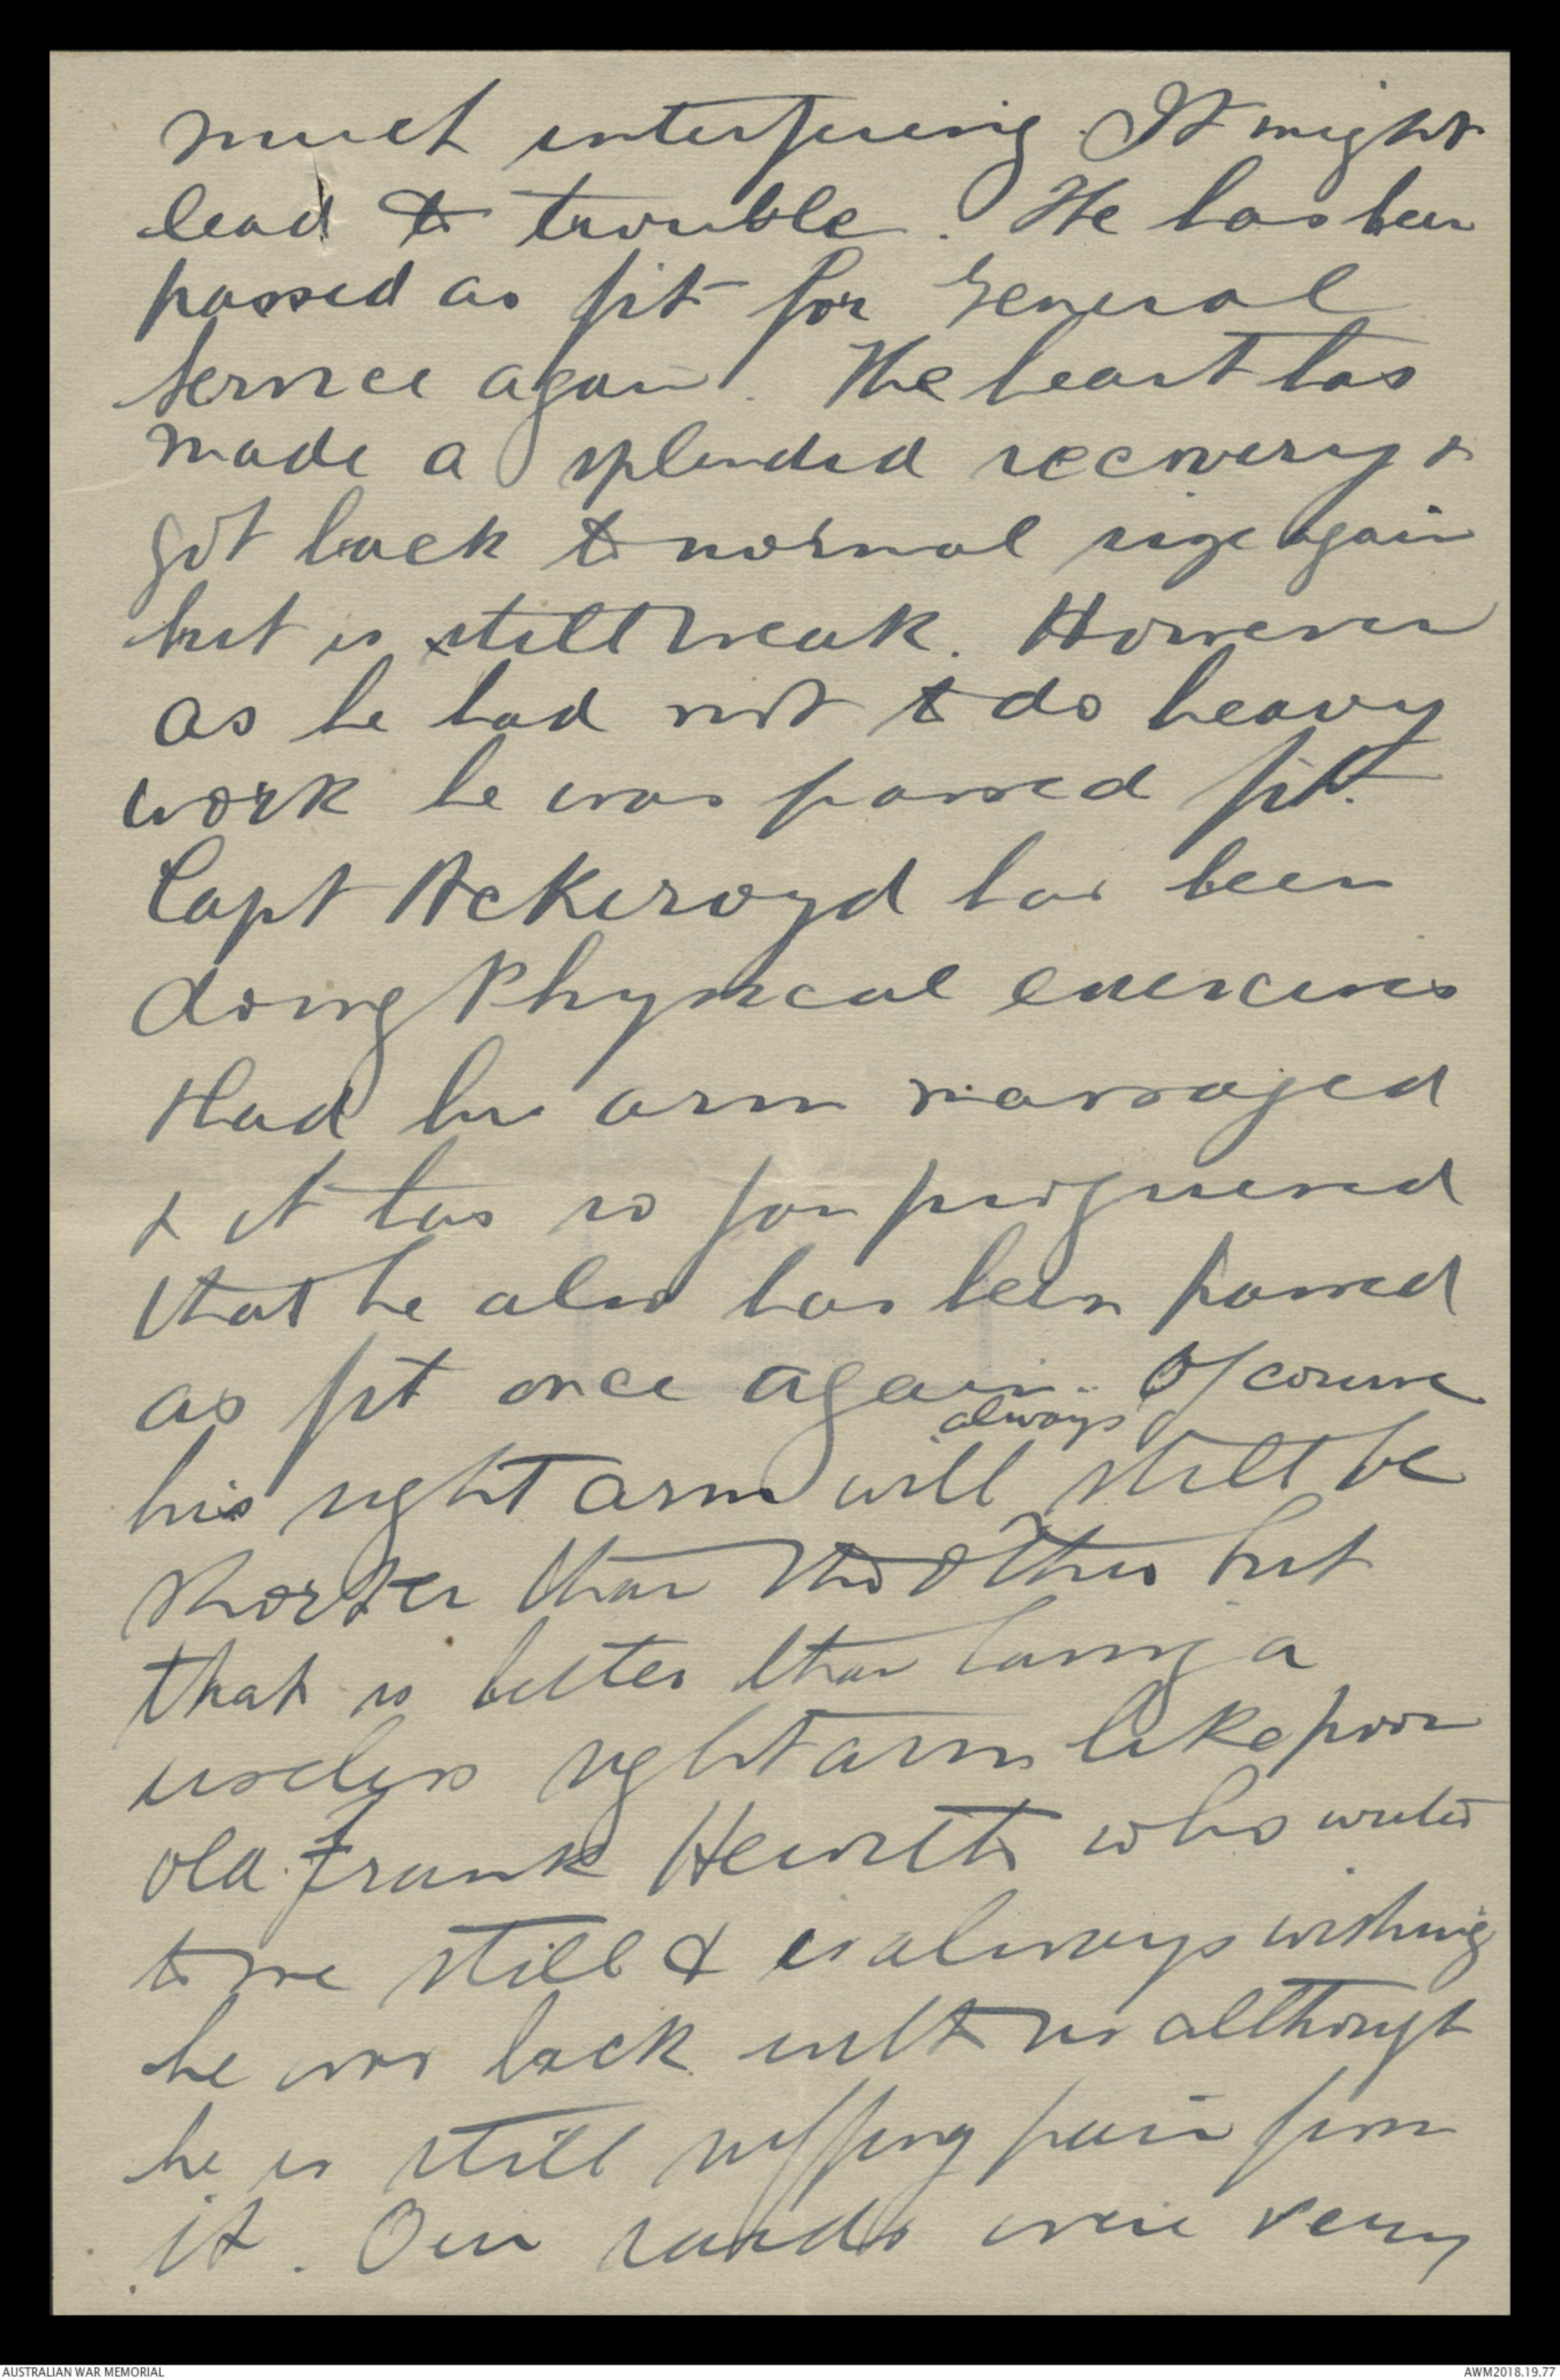 much interfering. It might
lead to trouble. He has been
passed as fit for General
Service again. The heart has
made a splendid recovery &
got back to normal size again
but is still weak. However
as he had not to do heavy
work he was passed fit.
Capt Ackeroyd has been
doing Physical exercises
Had his arm massaged
& it has so far progressed
that he also has been passed
as fit once again. Of course
always
his right arm will still be
shorter than the other but
that is better than having a
useless right arm like poor
old Frank Hewitt who writes
to me still & is always wishing
he was back with us although
he is still suffring pain from
it. Our raids were very
AUSTRALIAN WAR MEMORIAL
AWM2018.19.77